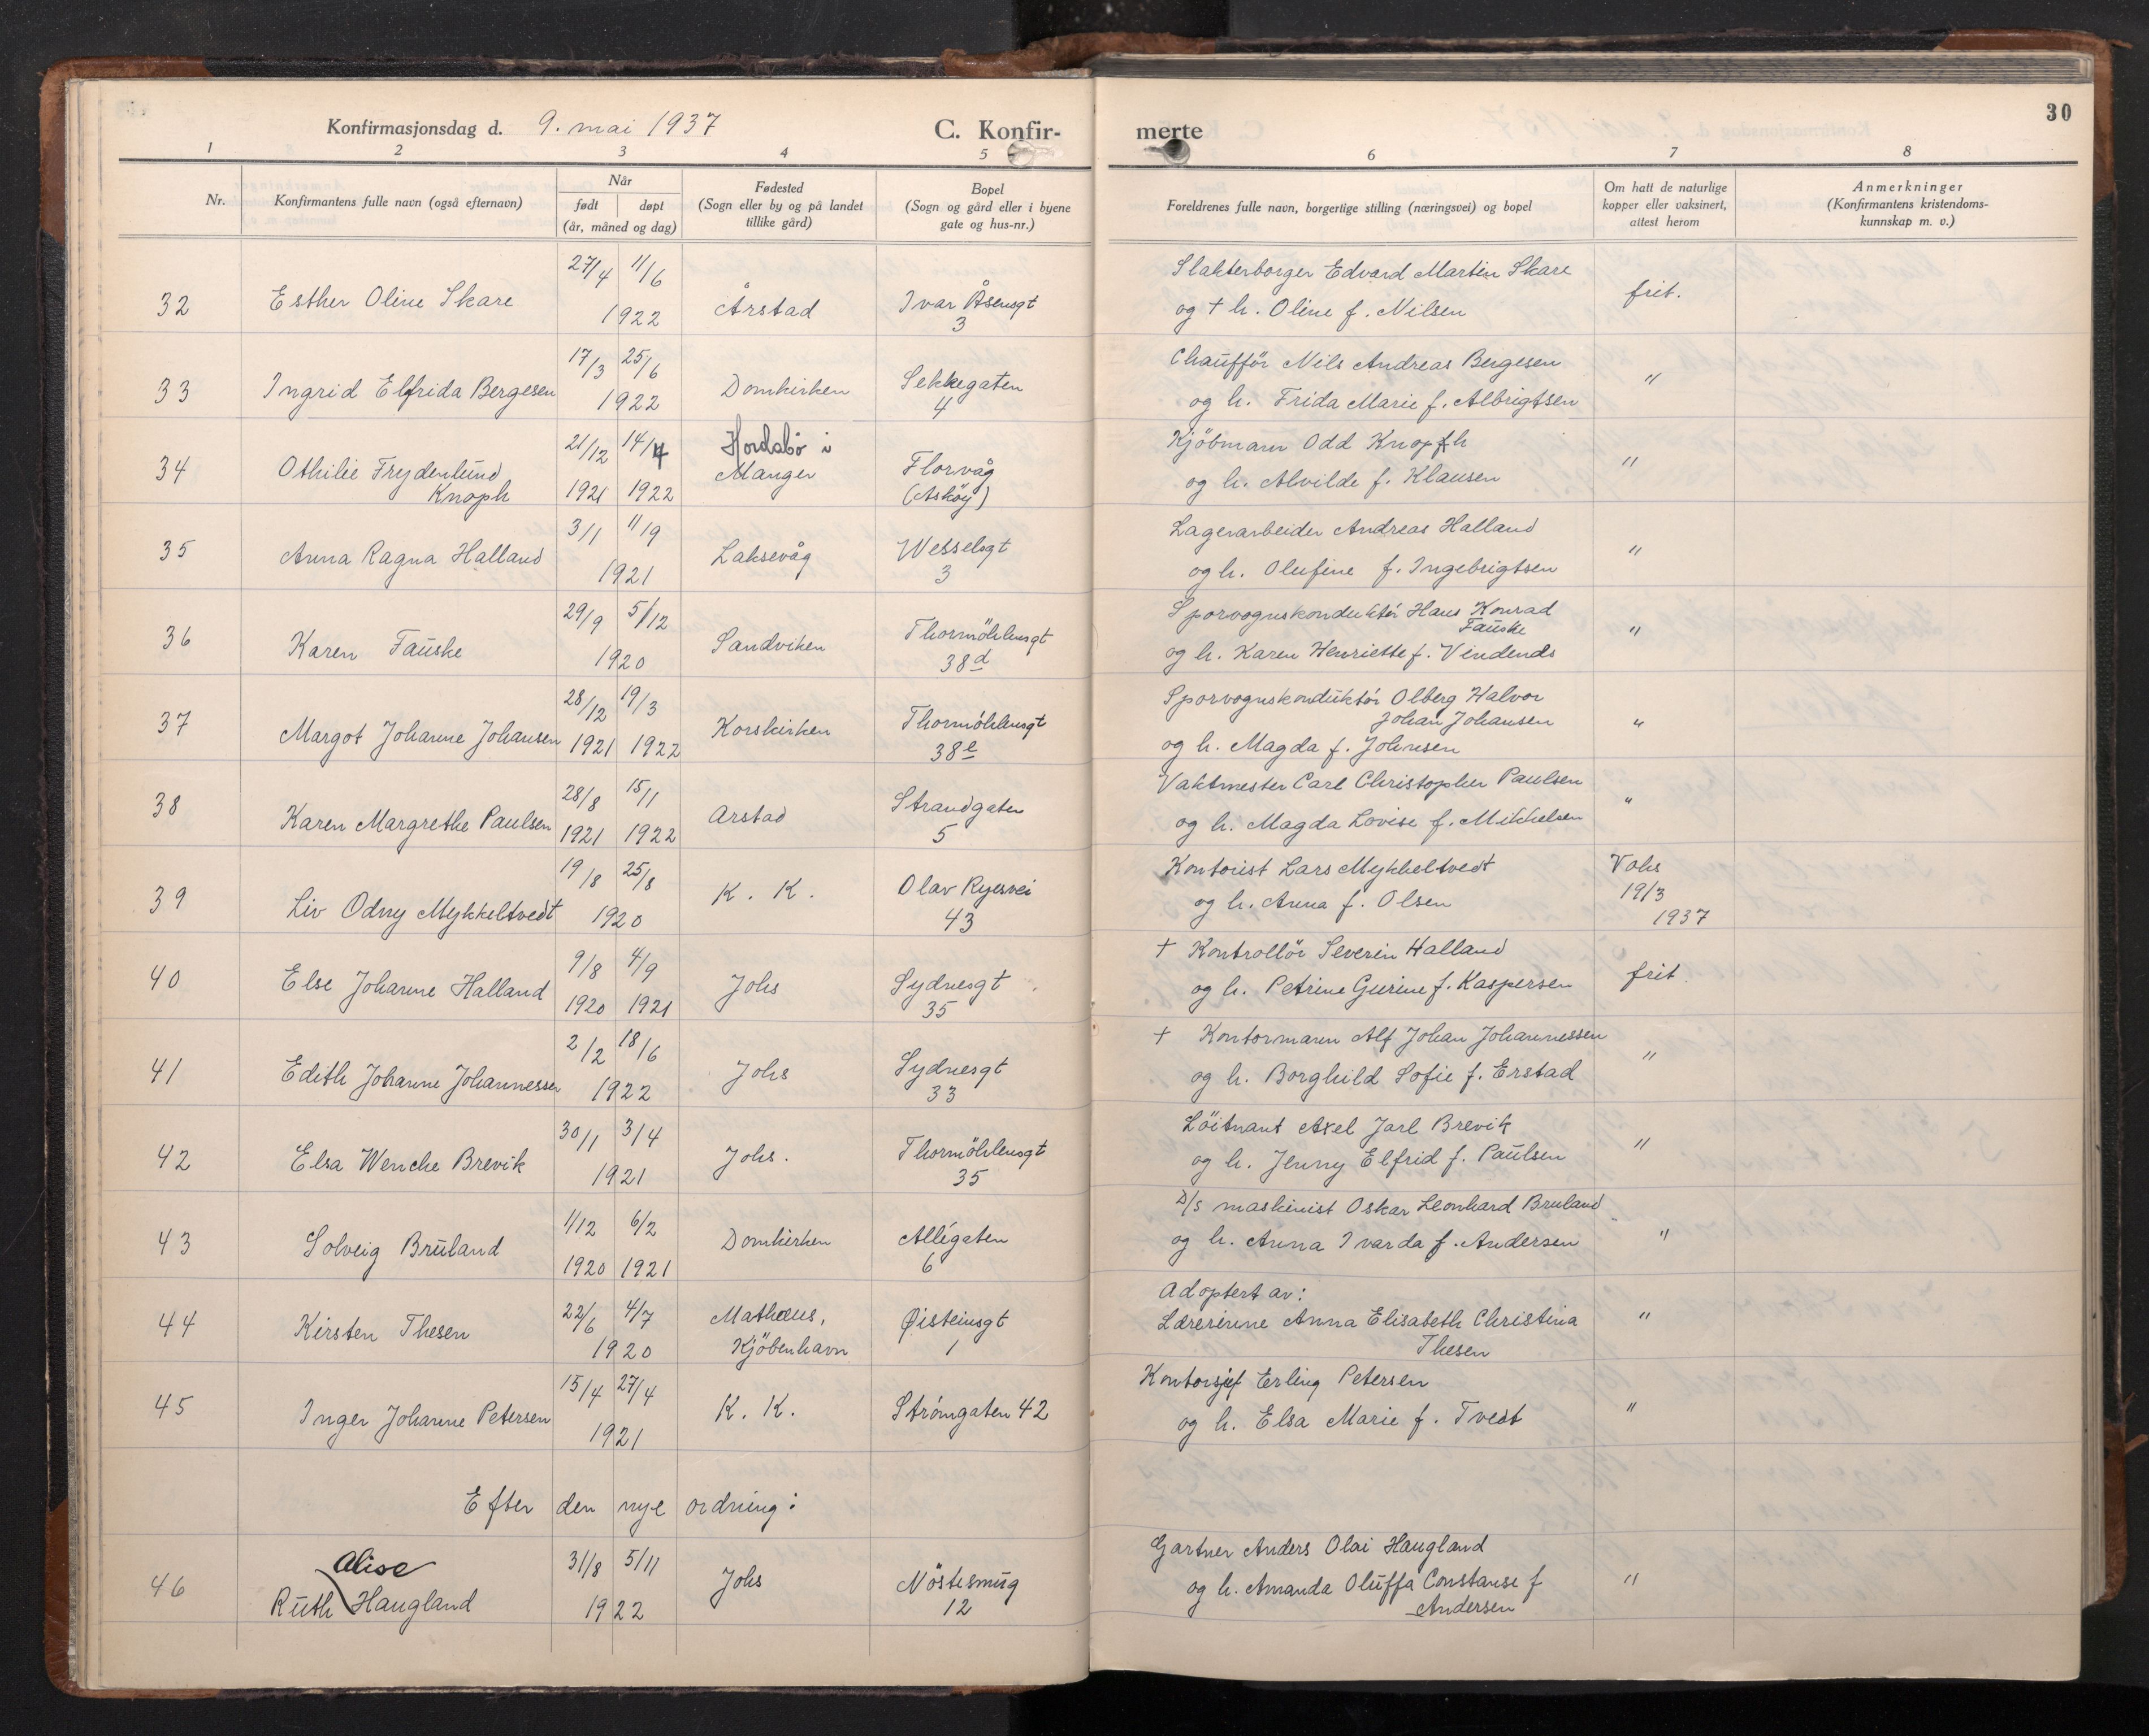 30
Konfirmasjonsdag d. 9. mai 1937
C. Konfir-merte
1 2 3 4 5 6 7 8
Nr.
Konfirmantens fulle navn (også efternavn)
Når
født døpt
(år, måned og dag)
Fødested
(Sogn eller by og på landet
tillike gård)
Bopel
(Sogn og gård eller i byene
gate og hus-nr.)
Foreldrenes fulle navn, borgerlige stilling (næringsvei) og bopel
Om hatt de naturlige
kopper eller vaksinert,
attest herom
Anmerkninger
(Konfirmantens kristendoms-
kunnskap m. v.)
27/4 11/6 Slakterborger Edvard Martin Skare
32 Esther Oline Skare 1922 Årstad Ivar Åsensgt 3 og † h. Oline f. Nilsen frit.
17/3 25/6 Chaufför Nils Andreas Bergesen
33 Ingrid Elfrida Bergesen 1922 Domkirken Sekkegaten 4 og h. Frida Marie f. Albrigtsen "
21/12 14/4 Hordabö i Kjöbmann Odd Knopfh
34 Othilie Frydenlund Manger Florvåg "
Knoph 1921 1922 (Asköy) og h. Alvilde f. Klausen
3/1 11/9 Lagerarbeider Andreas Halland
35 Anna Ragna Halland 1921 Laksevåg Wesselsgt 3 og h. Olufine f. Ingebrigtsen "
29/9 5/12 Sporvognskonduktör Hans Konrad
Fauske
36 Karen Fauske 1920 Sandviken Thormöhlensgt 38d og h. Karen Henriette f. Vindenes "
28/12 19/3 Sporvognskonduktör Olberg Halvor
Johan Johansen
37 Margot Johanne Johansen 1921 1922 Korskirken Thormöhlensgt 38e og h. Magda f. Johnsen "
28/8 15/1 Vaktmester Carl Christopher Paulsen
38 Karen Margrethe Paulsen 1921 1922 Arstad Strandgaten 5 og h. Magda Lovise f. Mikkelsen "
19/8 25/8 Kontorist Lars Mykkeltvedt Vaks
39 Liv Odny Mykkeltvedt 1920 K. K. Olav Ryesvei 43 og h. Anna f. Olsen 19/3
1937
9/8 4/9 † Kontrollör Severin Halland
40 Else Johanne Halland 1920 1921 Johs Sydnesgt 35 og h. Petrine Gurine f. Kaspersen frit.
2/2 18/6 † Kontormann Alf Johan Johannessen
41 Edith Johanne Johannessen 1922 Johs Sydnesgt 33 og h. Borghild Sofie f. Erstad "
30/1 3/4 Löitnant Axel Jarl Brevik
42 Elsa Wenche Brevik 1921 Johs. Thormöhlensgt 35 og h. Jenny Elfrid f. Paulsen "
1/12 6/2 D/S maskinist Oskar Leonhard Bruland
43 Solveig Bruland 1920 1921 Domkirken Allégaten 6 og h. Anna Ivarda f. Andersen "
22/6 4/7 Adoptert av:
44 Kirsten Thesen 1920 Mathæus, Kjöbenhavn Øisteinsgt 1 Lærerinne Anna Elisabeth Christina "
Thesen
15/4 27/4 Kontorsjef Erling Petersen
45 Inger Johanne Petersen 1921 K. K. Strömgaten 42 og h. Elsa Marie f. Tvedt "
Efter den nye ordning:
Alise 31/8 5/11 Gartner Anders Olai Haugland
46 Ruth Haugland 1922 Johs Nöstesmug 12 og h. Amanda Oluffa Constanse f "
Andersen